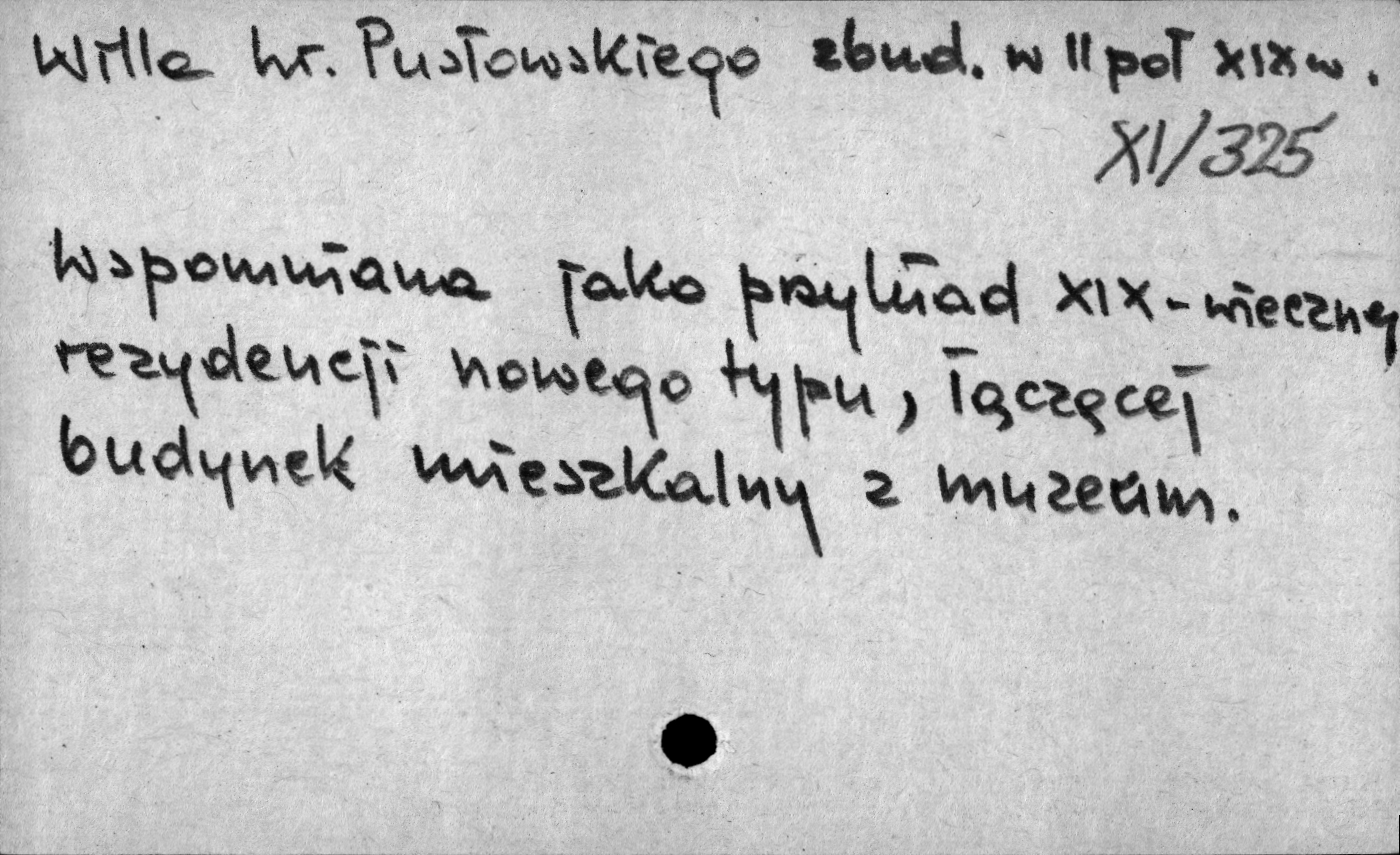 Willa hr. Pusłowskiego zbud. w II poł XIX w.
XI/325
Wspomniana jako przykład XIX-wiecznej
rezydencji nowego typu, łączącej
budynek mieszkalny z muzeum.